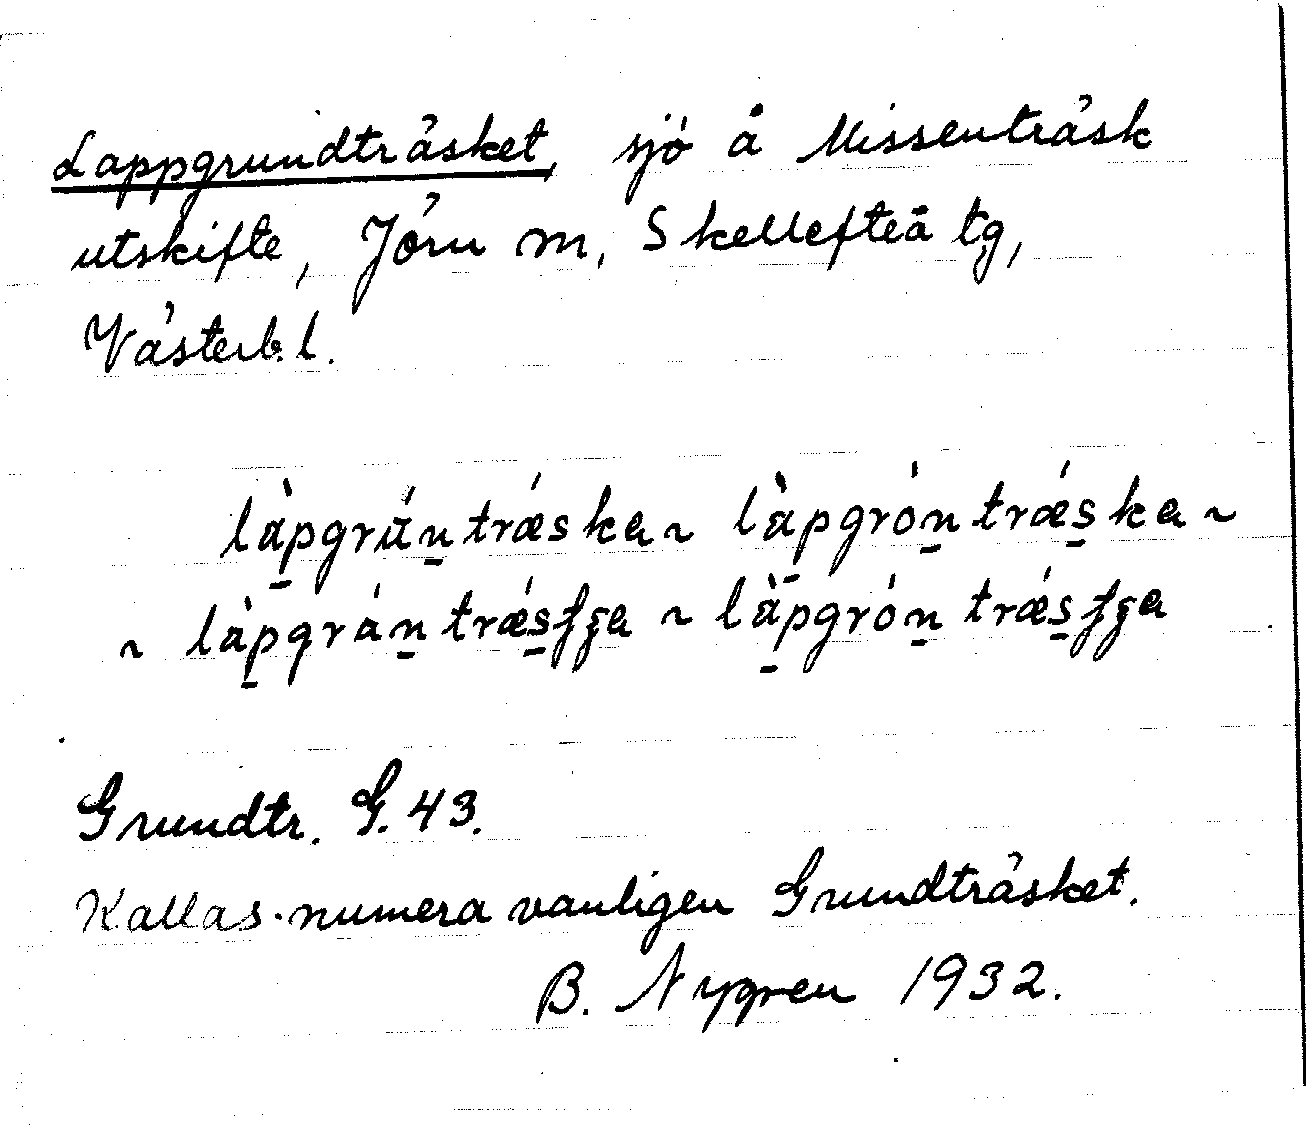 Lappgrundträsket, sjö å Missenträsk
utskifte, Jörn m, Skellefteå tg,
Västerb. l.
làpgrúnträ́ska ~ làpgrónträ́ska ~
~ làpgránträ́sʃʒa ~ làpgrónträ́sʃʒa
Grundtr. G. 43.
Kallas numera vanligen Grundträsket.
B. Nygren 1932.